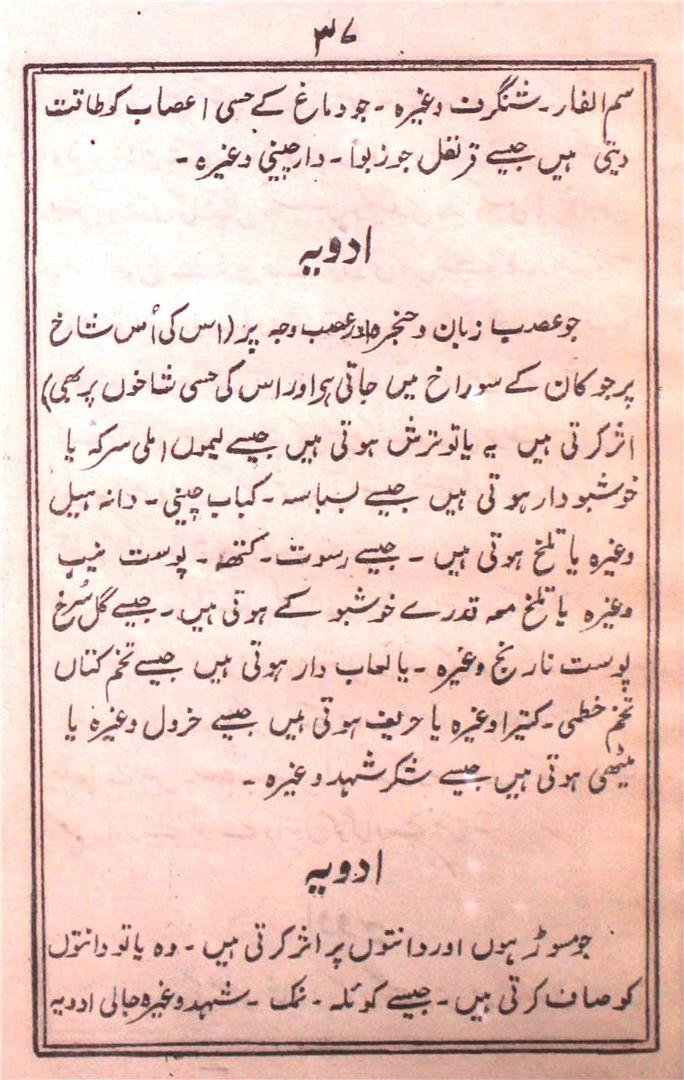 ۳۷
سم الفار۔ شنگرف وغیرہ۔ جو دماغ کے حسی اعصاب کو طاقت
دیتی ہیں جیسے قرنفل جوزبوا۔ دارچینی وغیرہ۔
ادویہ
جو عصب زبان و حنجرہ اور عصب وجہ پر (اس کی اُس شاخ
پر جو کان کے سوراخ میں جاتی ہی اور اس کی حسی شاخوں پر بھی)
اثر کرتی ہیں یہ یا تو ترش ہوتی ہیں جیسے لیموں املی سرکہ یا
خوشبودار ہوتی ہیں جیسے بسباسہ۔ کباب چینی۔ دانہ ہیل
وغیرہ یا تلخ ہوتی ہیں۔ جیسے رسوت۔ کتھہ۔ پوست نیب
وغیرہ یا تلخ معہ قدرے خوشبو کے ہوتی ہیں۔ جیسے گل سُرخ
پوست نارنج وغیرہ۔ یا لعاب دار ہوتی ہیں جیسے تخم کتاں
تخم خطمی۔ کتیرا وغیرہ یا حریف ہوتی ہیں جیسے خردل وغیرہ یا
میٹھی ہوتی ہیں جیسے شکر شہد وغیرہ۔
ادویہ
جو مسوڑہوں اور دانتوں پر اثر کرتی ہیں۔ وہ یا تو دانتوں
کو صاف کرتی ہیں۔ جیسے کوئلہ۔ نمک۔ شہد وغیرہ جالی ادویہ